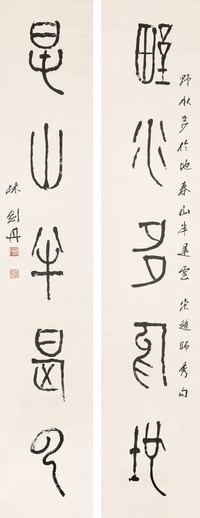 野水多於地
野水多於地春山半是雲 宋趙師秀句
春山半是云
林劍丹